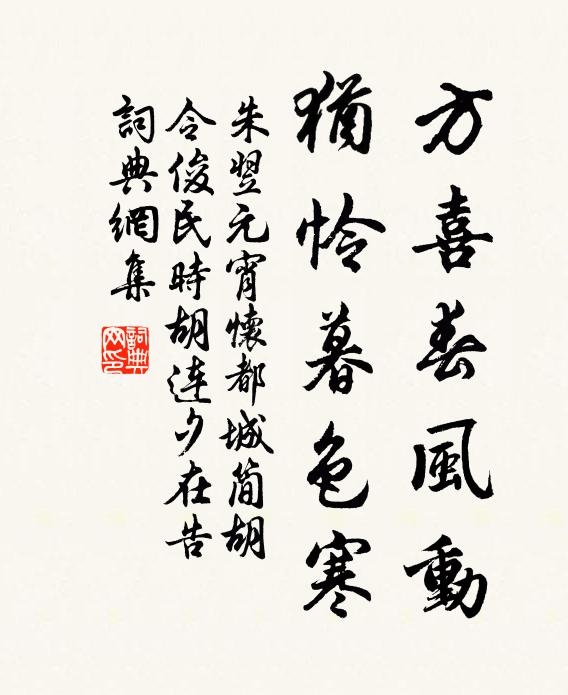 方喜春風動
猶怜暮色寒
朱翌元宵懷都城簡胡
令俊民時胡連夕在告
詞典網集
詞典网印